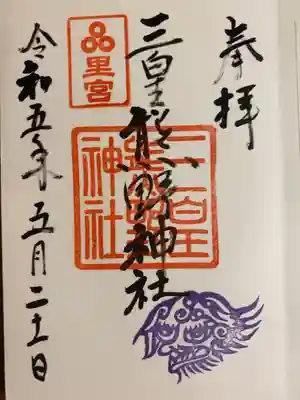 奉拝
三皇熊野神社
令和五年五月二十一日
里宮
三皇
熊野
神社